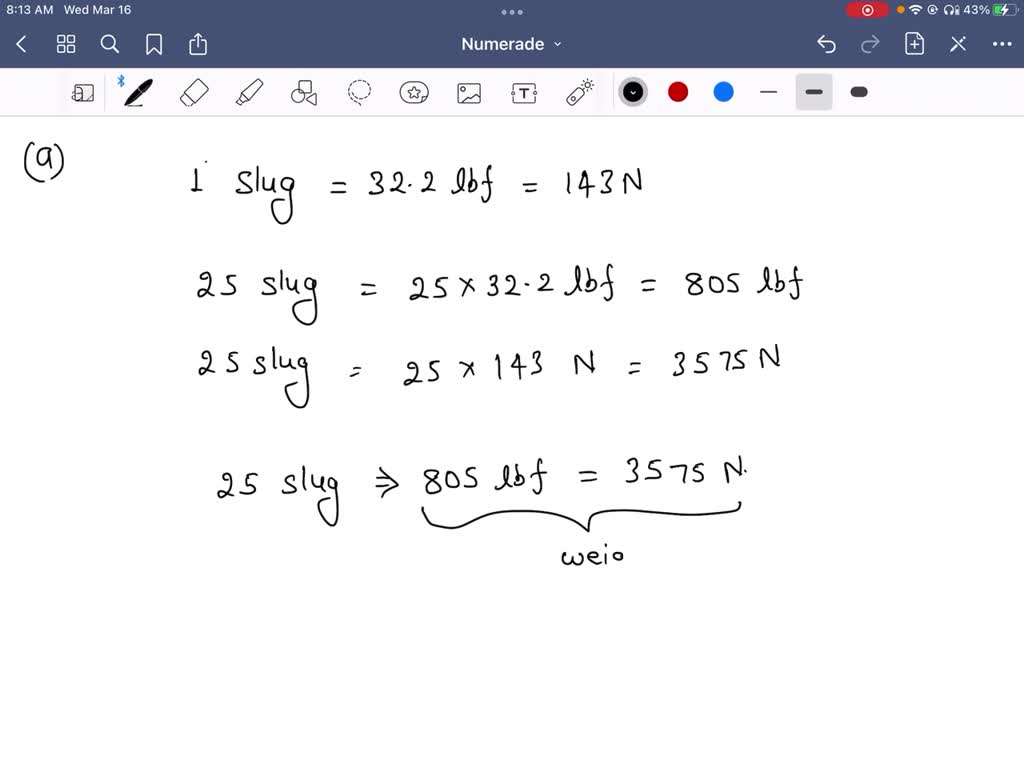 8:13 AM Wed Mar 16
43%
Numerade
(a)
1 slug = 32.2 lbf = 143 N
25 slug = 25 × 32.2 lbf = 805 lbf
25 slug = 25 × 143 N = 3575 N
25 slug ⇒ 805 lbf = 3575 N.
weio